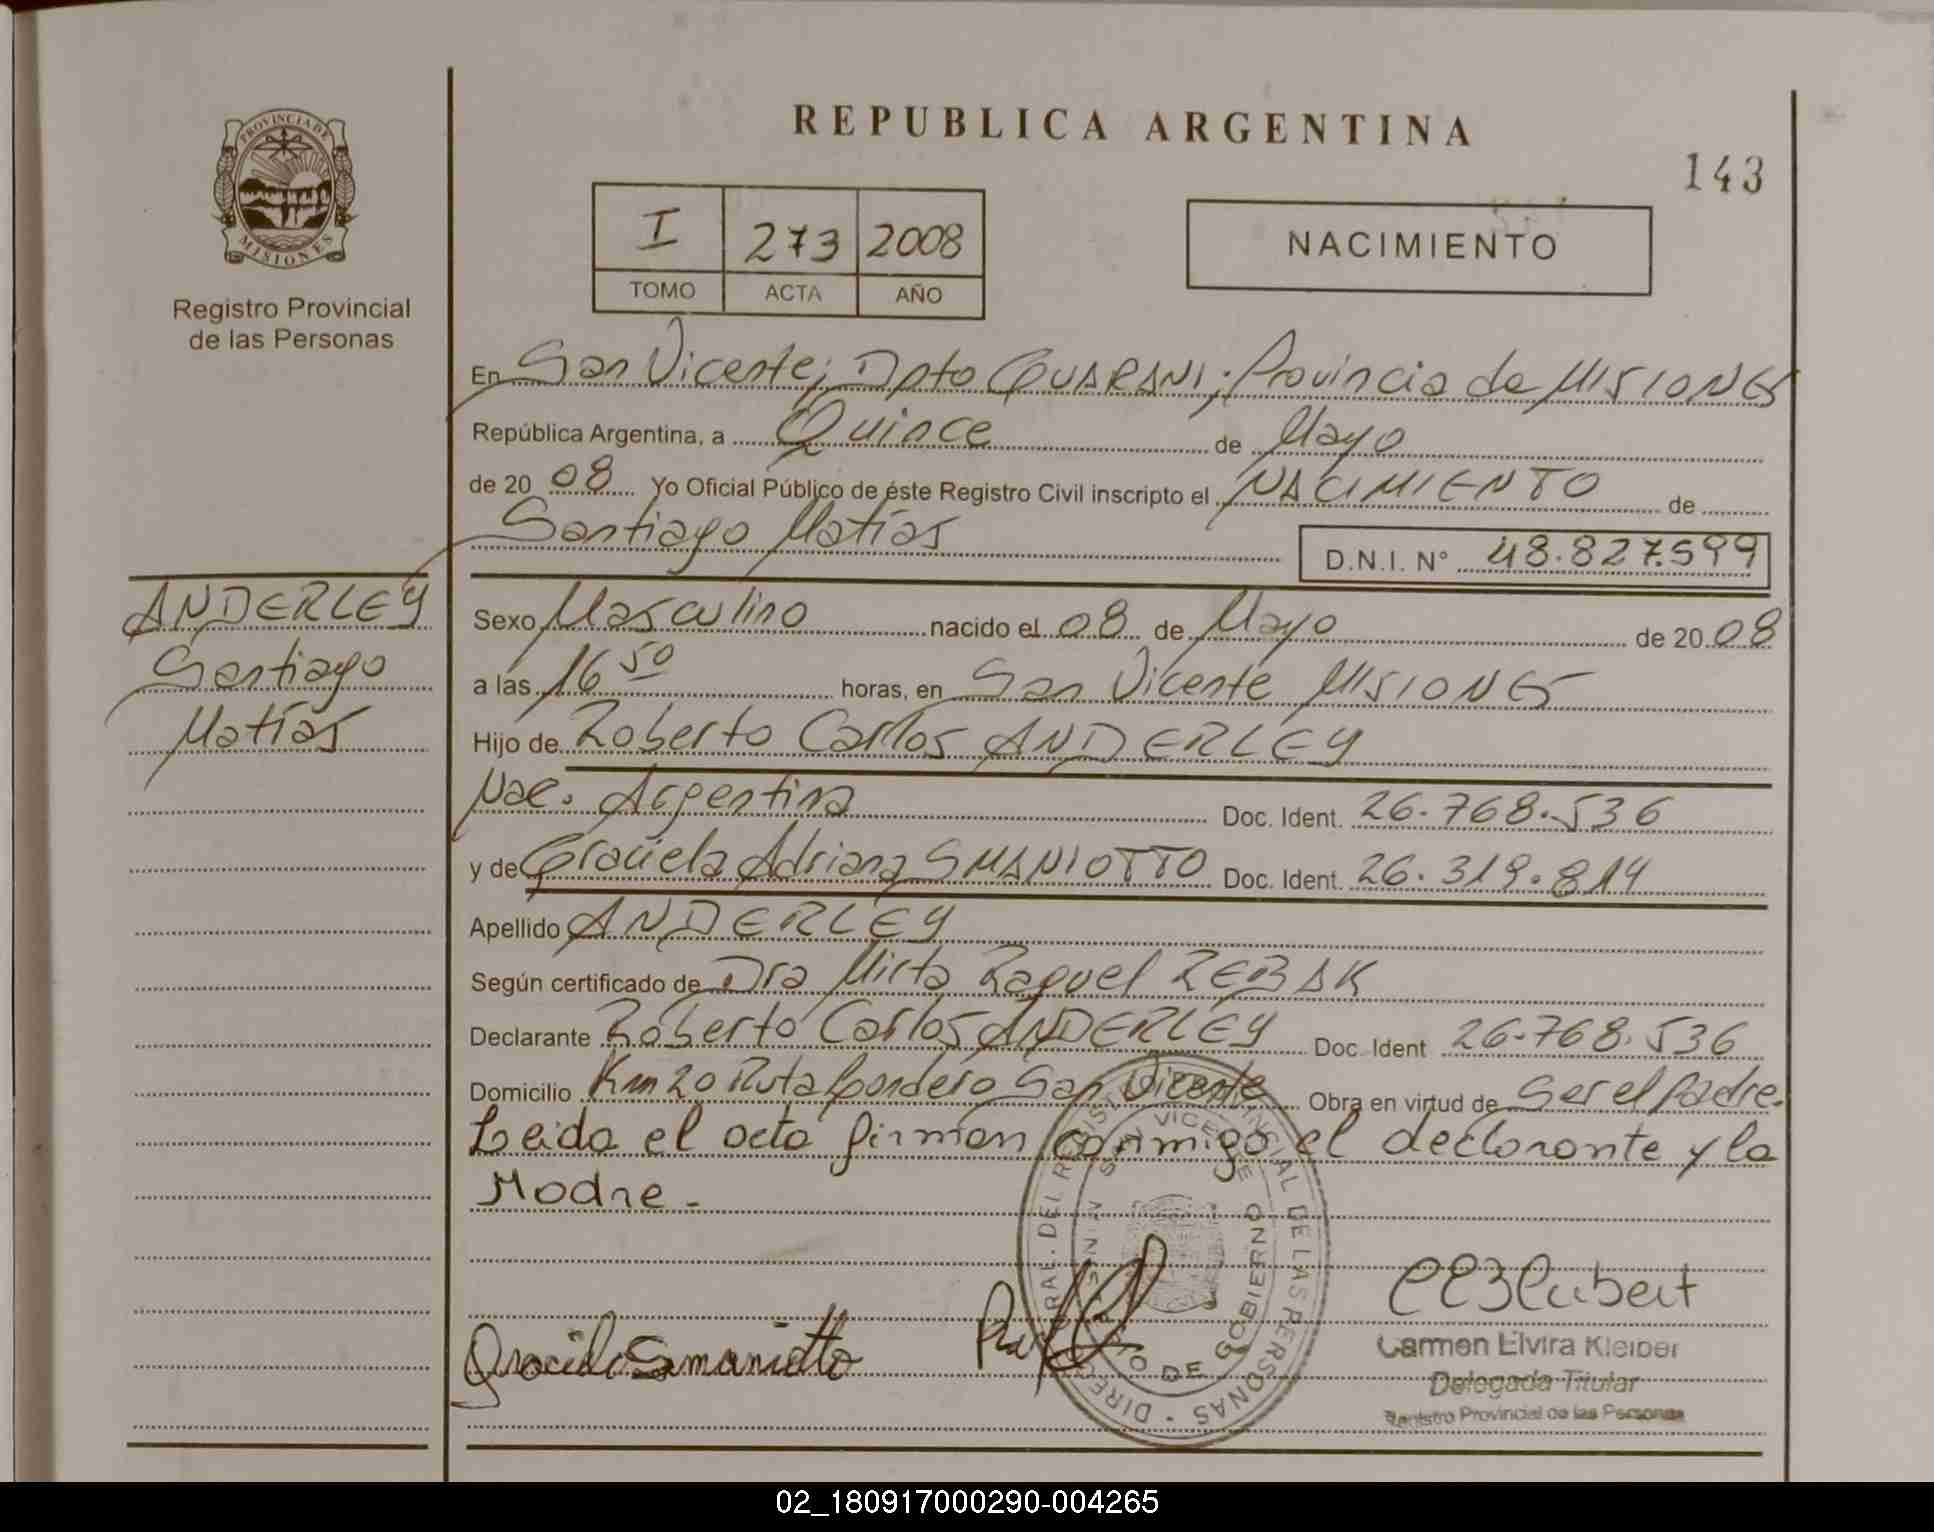 REPUBLICA ARGENTINA
143
PROVINCIA DE
MISIONES
Registro Provincial
de las Personas
I 273 2008
TOMO ACTA AÑO
NACIMIENTO
En San Vicente; Dpto GUARANI; Provincia de MISIONES
República Argentina, a Quince de Mayo
de 20 08 Yo Oficial Público de éste Registro Civil inscripto el NACIMIENTO de
Santiago Matías D.N.I. N° 48.827.599
ANDERLEY
Santiago
Matías
Sexo Masculino nacido el 08 de Mayo de 20 08
a las 16 50 horas, en San Vicente MISIONES
Hijo de Roberto Carlos ANDERLEY
Nac. Argentina Doc. Ident. 26.768.536
y de Graciela Adriana SMANIOTTO Doc. Ident. 26.319.814
Apellido ANDERLEY
Según certificado de Dra Mirta Raquel REBAK
Declarante Roberto Carlos ANDERLEY Doc. Ident 26.768.536
Domicilio Km 20 Ruta Costera San Vicente Obra en virtud de Ser el Padre.
Leida el acta firman conmigo el declarante y la
Madre.-
Graciela Smaniotto
Carmen Elvira Kleiber
Delegada Titular
Registro Provincial de las Personas
DEL REGISTRO PROVINCIAL DE LAS PERSONAS
SAN VICENTE
DE GOBIERNO
02_180917000290-004265